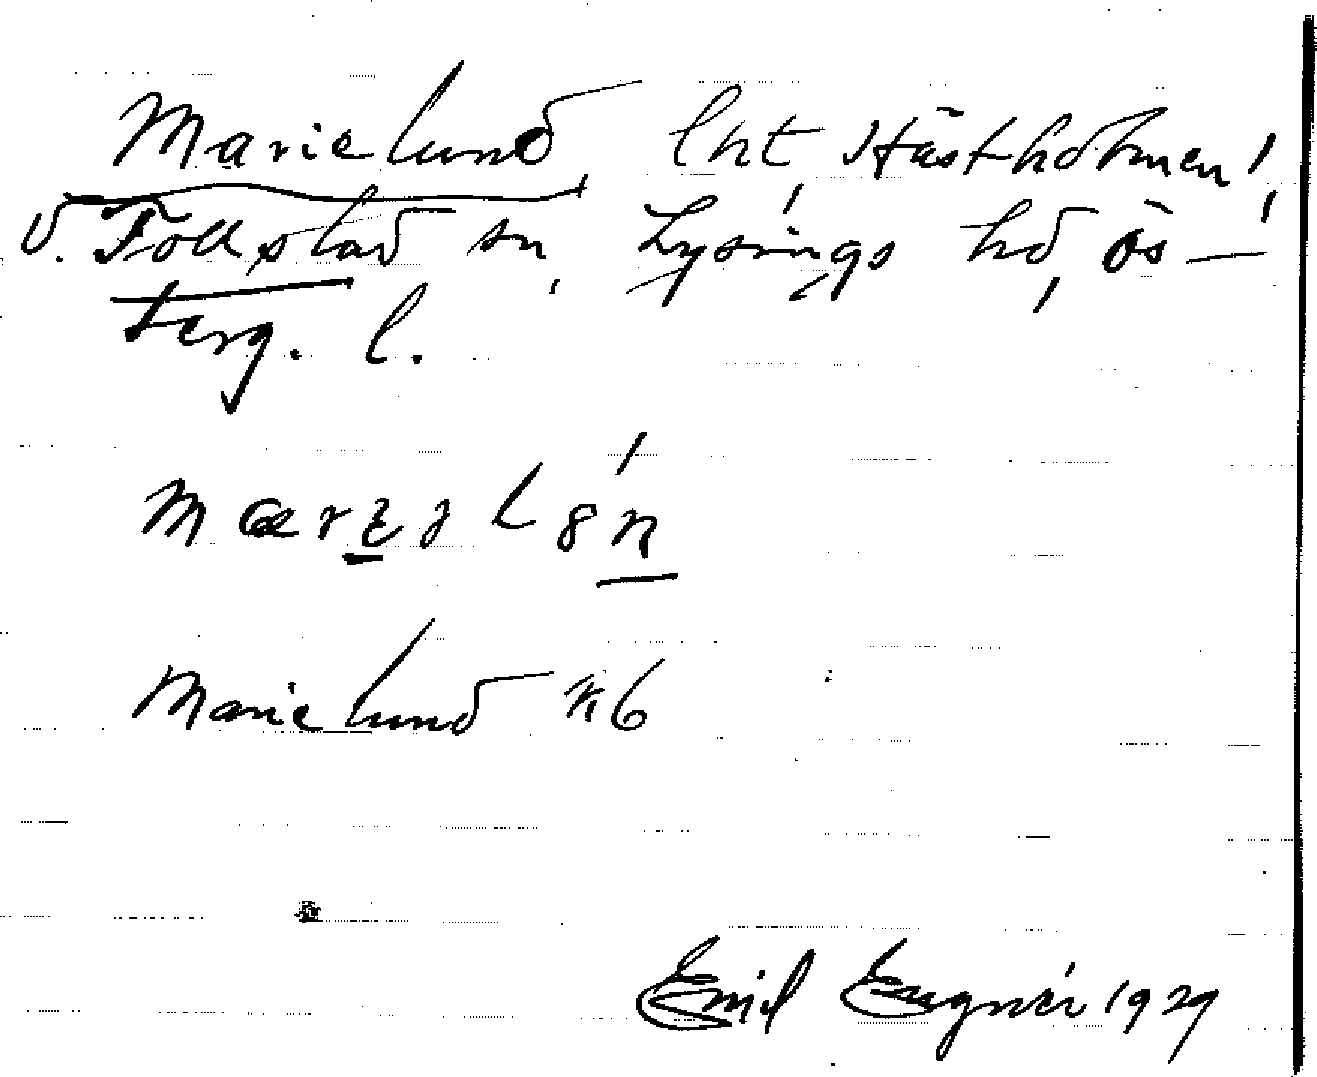 Marielund lht Hästholmen,
V. Tollstad sn, Lysings hd, Ös-
terg. l.
Marielund n 6
Emil Eugnér 1929